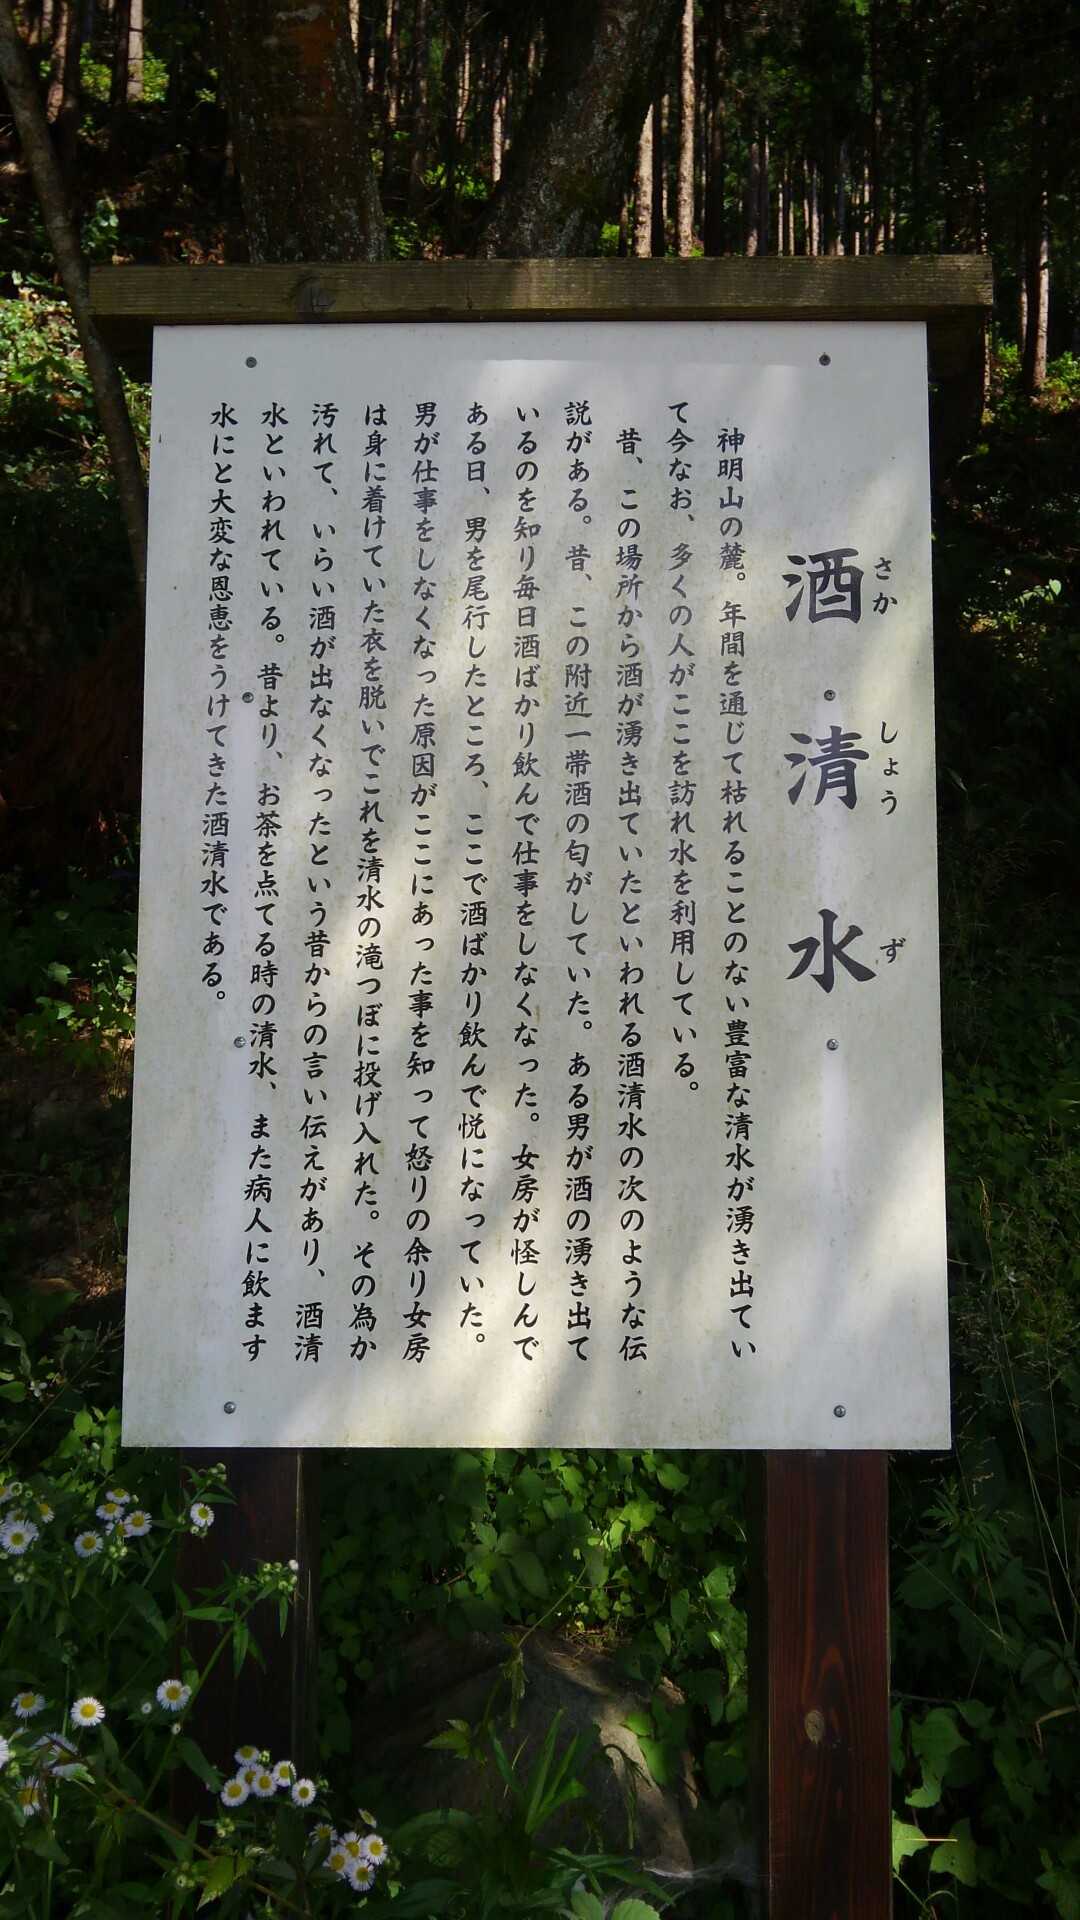 酒清水
さかしょうず
神明山の麓。年間を通じて枯れることのない豊富な清水が湧き出てい
て今なお、多くの人がここを訪れ水を利用している。
昔、この場所から酒が湧き出ていたといわれる酒清水の次のような伝
説がある。昔、この附近一帯酒の匂がしていた。ある男が酒の湧き出て
いるのを知り毎日酒ばかり飲んで仕事をしなくなった。女房が怪しんで
ある日、男を尾行したところ、ここで酒ばかり飲んで悦になっていた。
男が仕事をしなくなった原因がここにあった事を知って怒りの余り女房
は身に着けていた衣を脱いでこれを清水の滝つぼに投げ入れた。その為か
汚れて、いらい酒が出なくなったという昔からの言い伝えがあり、酒清
水といわれている。昔より、お茶を点てる時の清水、また病人に飲ます
水にと大変な恩恵をうけてきた酒清水である。